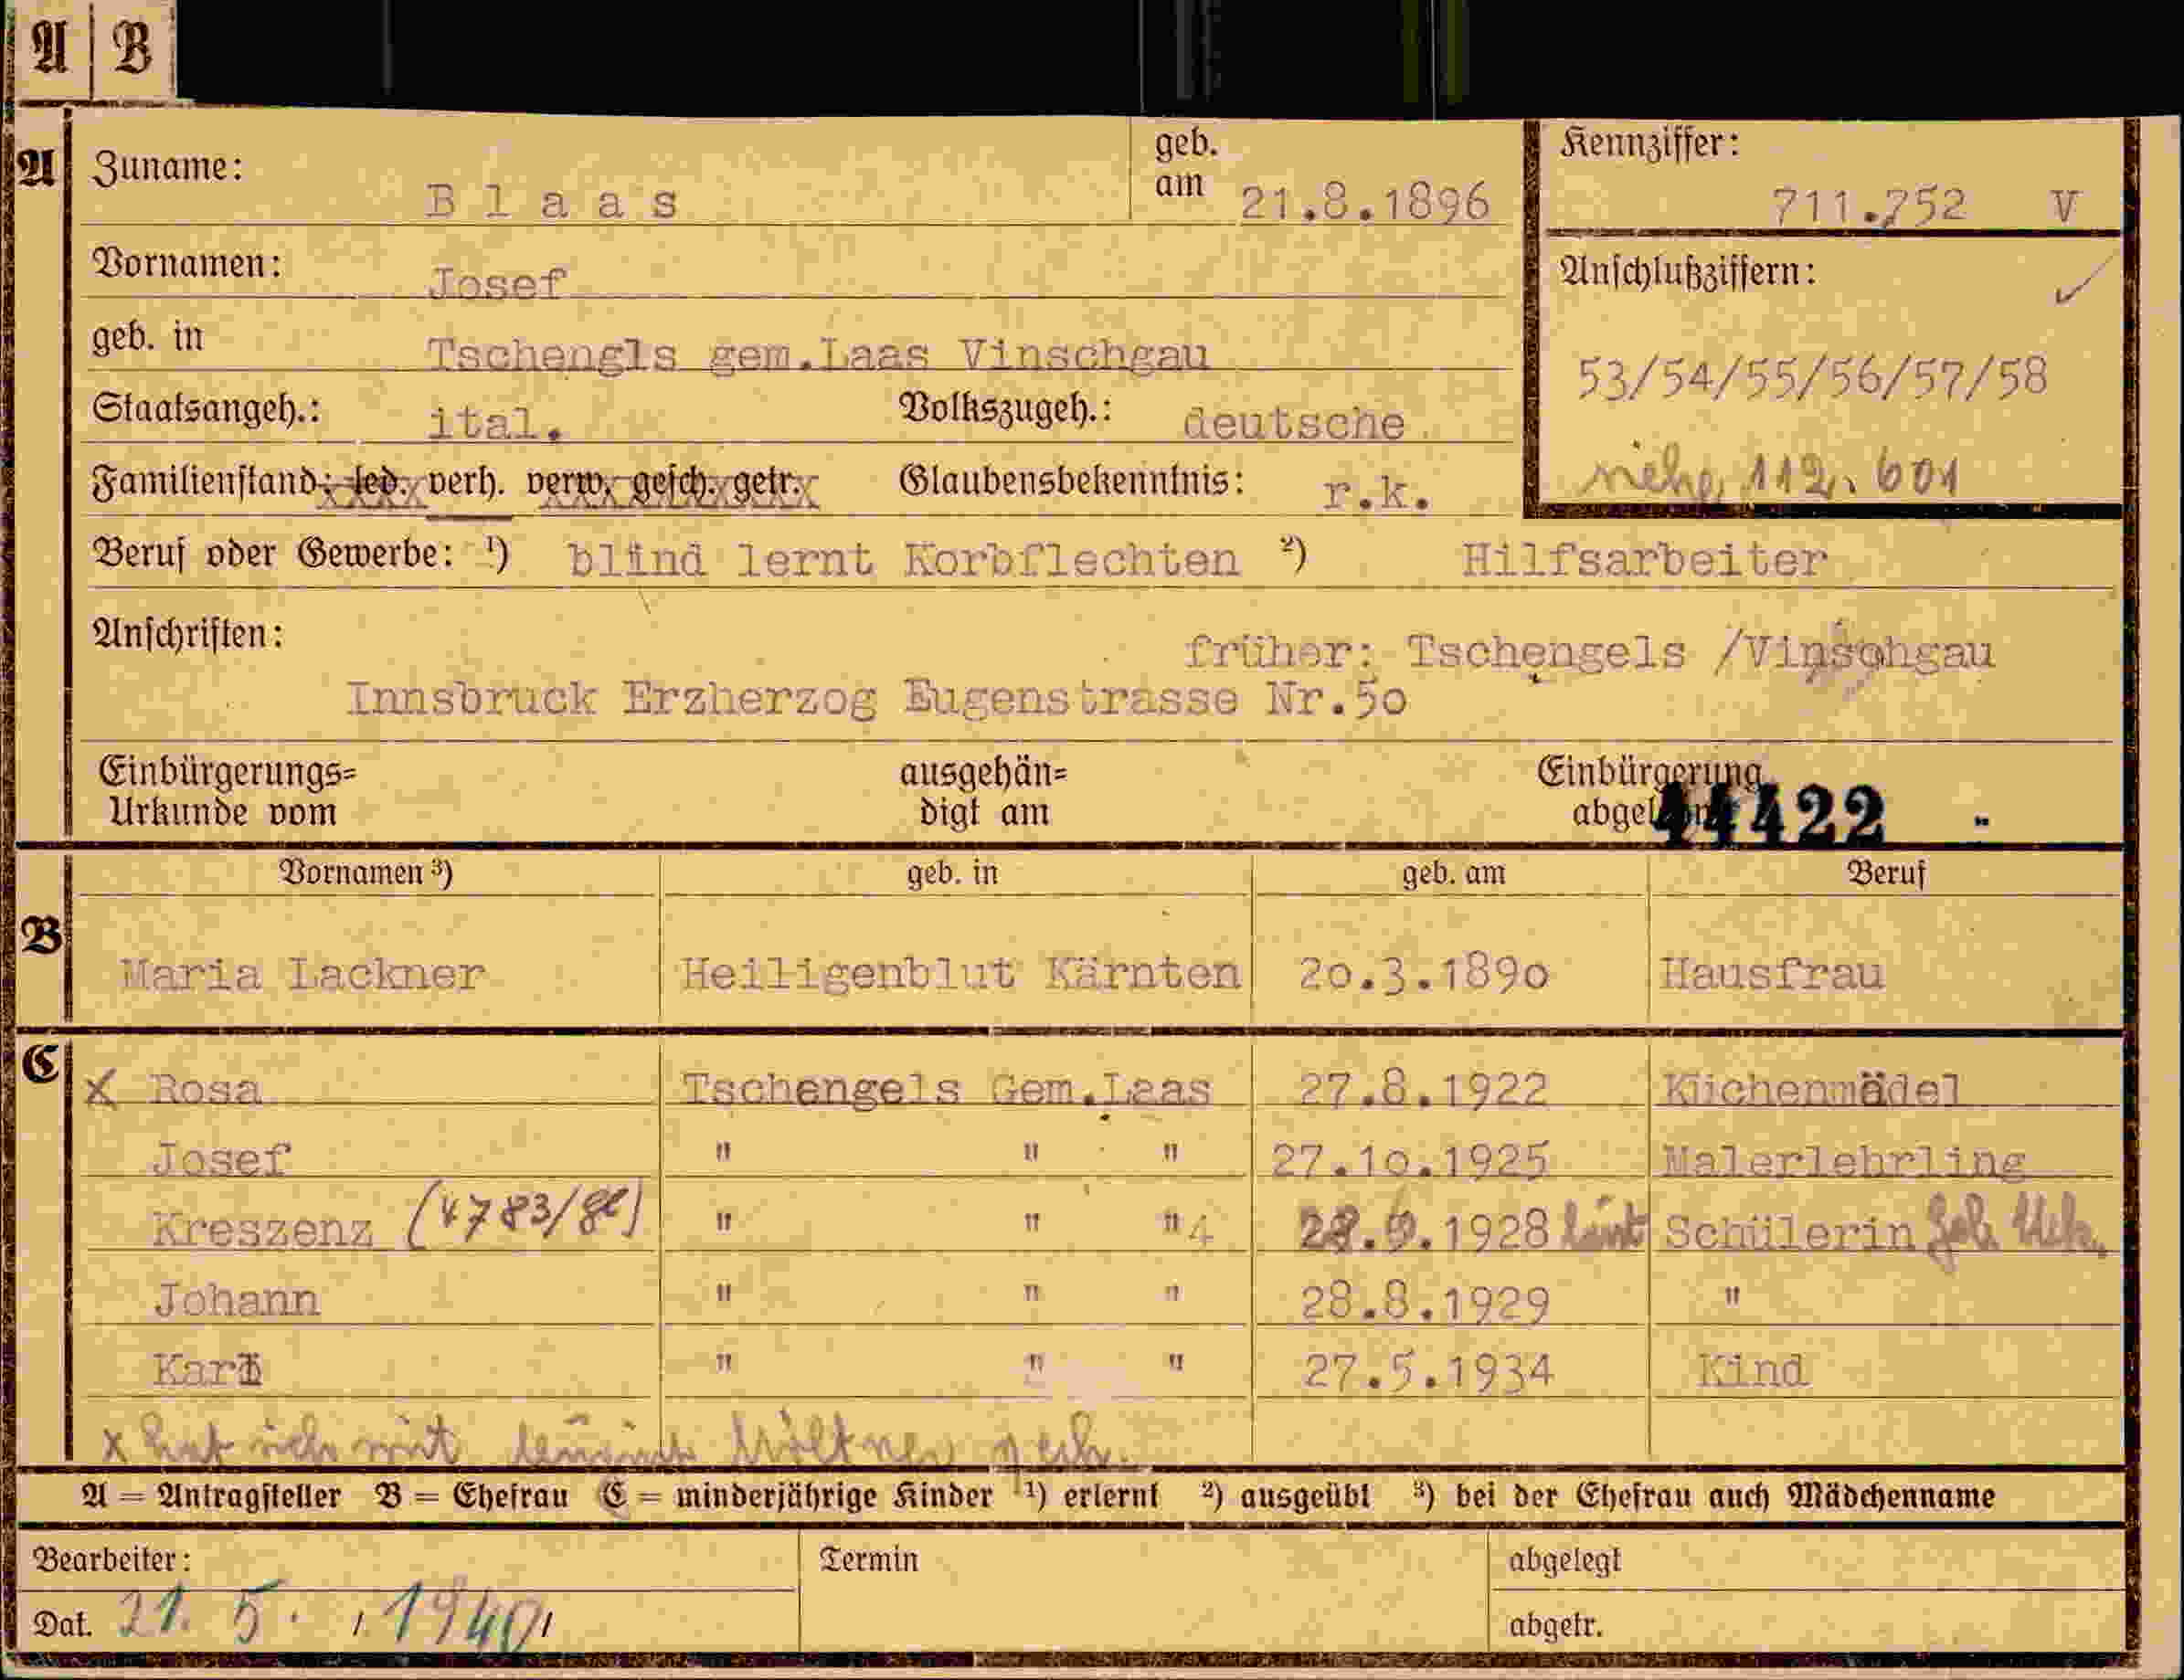 A B
A Zuname: Blaas geb. am 21.8.1896 Kennziffer: 711.752 V
Vornamen: Josef Anschlußziffern: ✓
geb. in Tschengls gem.Laas Vinschgau 53/54/55/56/57/58
Staatsangeh.: ital. Volkszugeh.: deutsche
Familienstand: led. verh. verw. gesch. getr. Glaubensbekenntnis: r.k. siehe 112.601
Beruf oder Gewerbe: ¹) blind lernt Korbflechten ²) Hilfsarbeiter
Anschriften: früher: Tschengels /Vinschgau
Innsbruck Erzherzog Eugenstrasse Nr.50
Einbürgerungs= ausgehän= Einbürgerung
Urkunde vom digt am 44422
Vornamen ³) geb. in geb. am Beruf
B Maria Lackner Heiligenblut Kärnten 20.3.1890 Hausfrau
C X Rosa Tschengels Gem.Laas 27.8.1922 Küchenmädel
Josef " " " 27.10.1925 Malerlehrling
Kreszenz " " " 4 1928 laut Schülerin Geb.
Johann " " " 28.8.1929 "
Karl " " " 27.5.1934 Kind
x hat sich mit
A = Antragsteller B = Ehefrau C = minderjährige Kinder ¹) erlernt ²) ausgeübt ³) bei der Ehefrau auch Mädchenname
Bearbeiter: Termin abgelegt
Dat. 21. 5. 1940 abgetr.